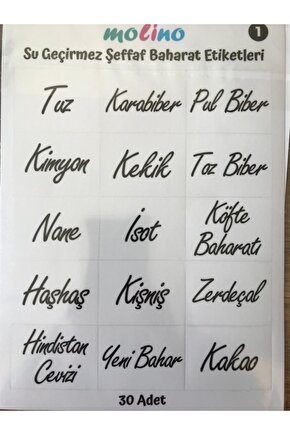 molino
1
Su Geçirmez Şeffaf Baharat Etiketleri
Tuz Karabiber Pul Biber
Kimyon Kekik Toz Biber
Nane İsot Köfte
Baharatı
Haşhaş Kişniş Zerdeçal
Hindistan
Cevizi Yeni Bahar Kakao
30 Adet